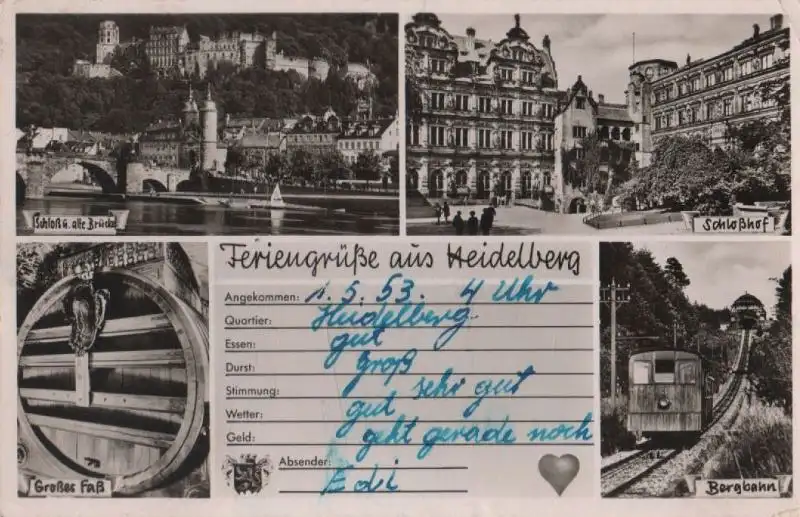 Schloß u. alte Brücke
Schloßhof
Feriengrüße aus Heidelberg
Angekommen: 1. 5. 53. 4 Uhr
Quartier: Heidelberg
Essen: gut
Durst: Groß
Stimmung: sehr gut
Wetter: gut
Geld: geht gerade noch
Absender: Edi
Großes Faß
Bergbahn